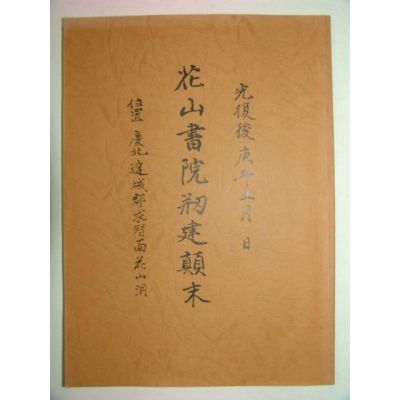 光復後庚午五月 日
花山書院刱建顛末
位置 慶北達城郡求智面花山洞